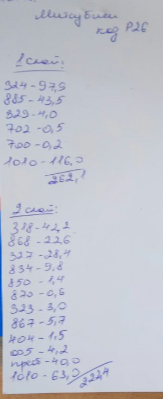 Митсубиси
код P26
1 слой:
324-97,9
885-43,5
329-4,0
702-0,5
700-0,2
1010-116,0
262,1
2 слой:
318-42,2
868-22,6
327-28,4
834-9,8
850-1,4
870-0,6
323-3,0
867-5,7
404-1,5
005-4,2
-40,0
1010-63,0
222,4